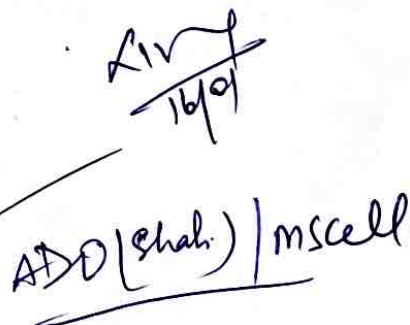 16/01
ADO (Shah.) | MScell